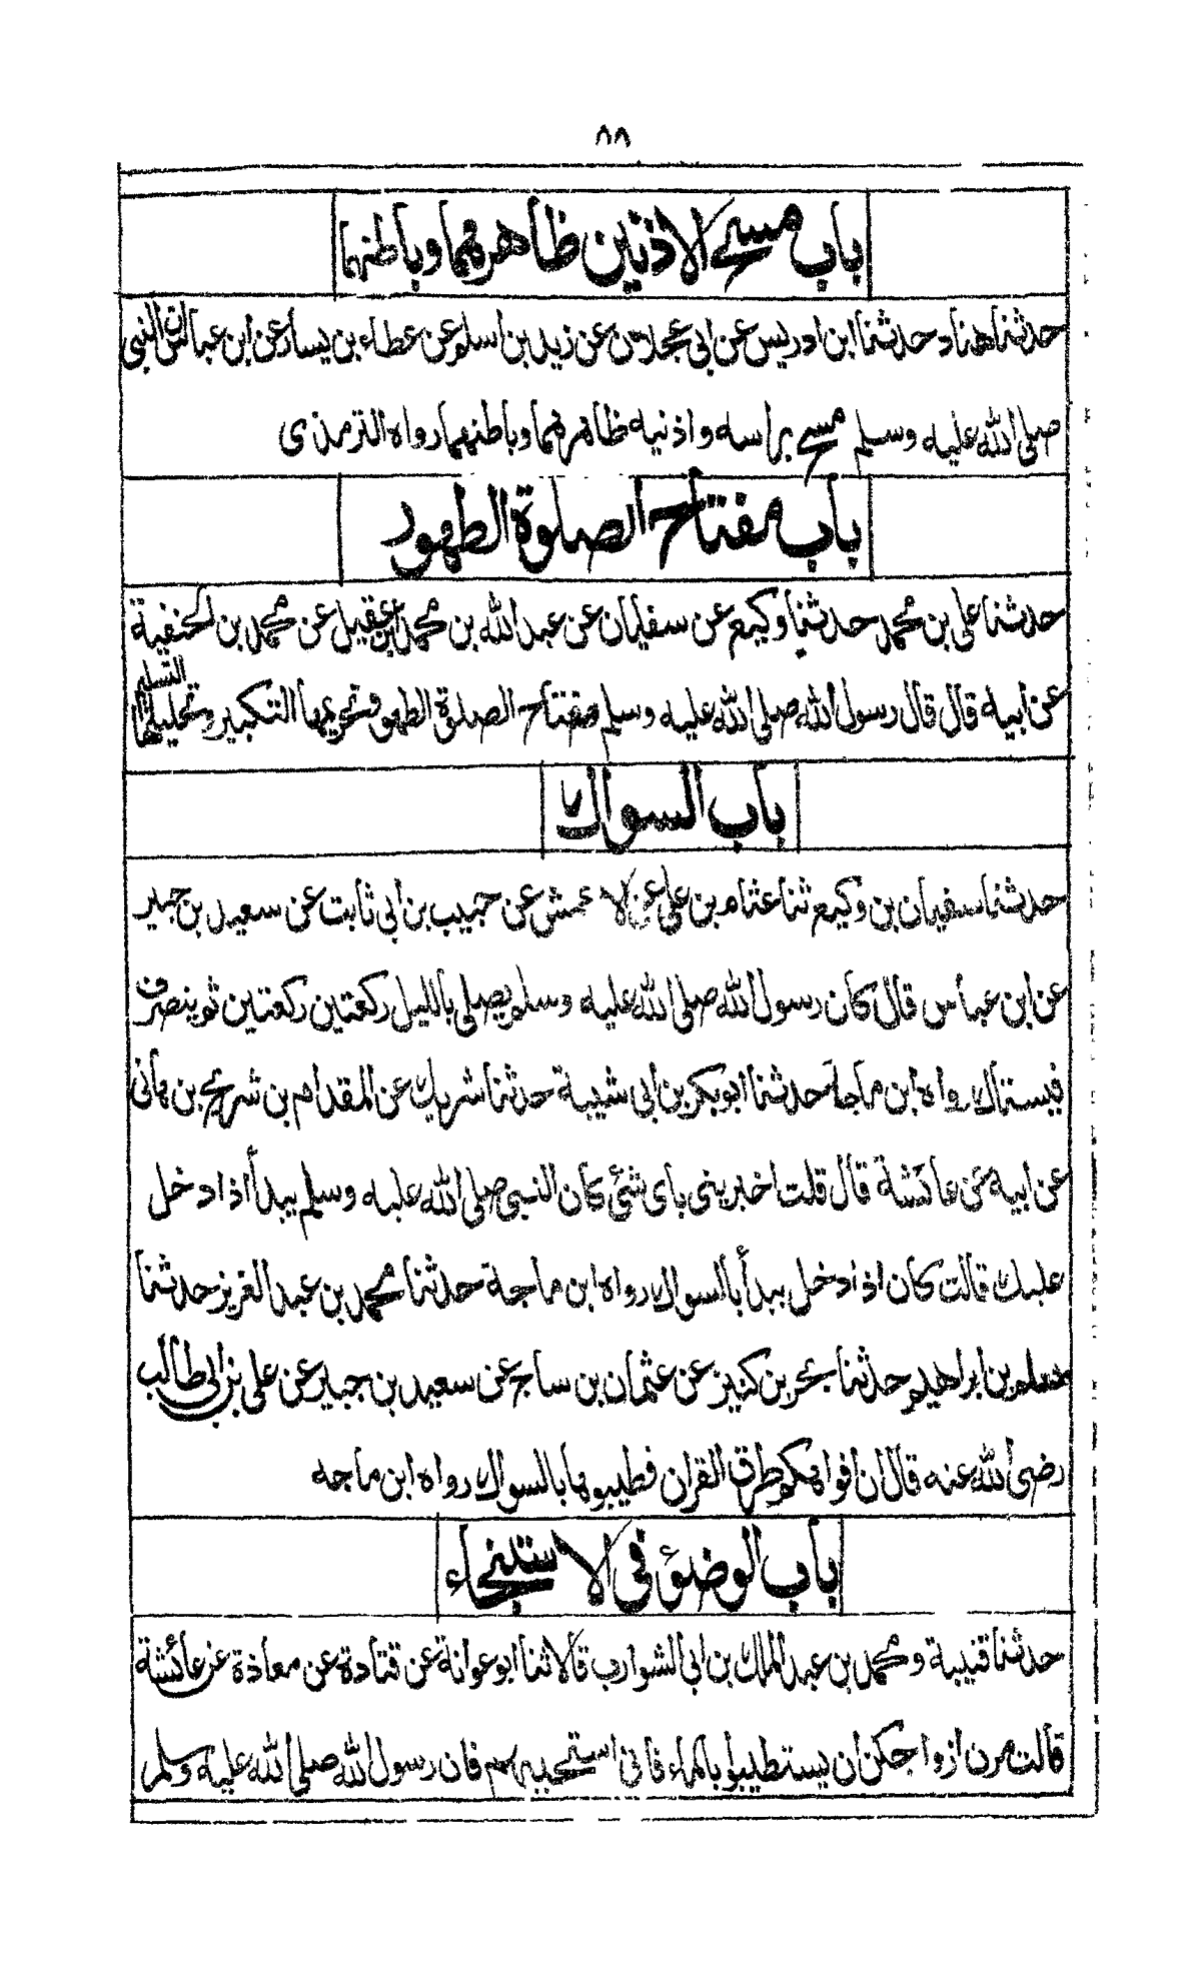 ٨٨
باب مسح الاذنين ظاهرهما وباطنهما
حدثنا هناد حدثنا ابن ادريس عن ابى عجلان عن زيد بن اسلم عن عطاء بن يسار عن ابن عباس ان النبى
صلى الله عليه وسلم مسح براسه واذنيه ظاهرهما وباطنهما رواه الترمذى
باب مفتاح الصلوة الطهور
حدثنا على بن محمد حدثنا وكيع عن سفيان عن عبد الله بن محمد بن عقيل عن محمد بن الحنفية
عن ابيه قال قال رسول الله صلى الله عليه وسلم مفتاح الصلوة الطهور وتحريمها التكبير وتحليلها التسليم
باب السواك
حدثنا سفيان بن وكيع ثنا عثام بن على عن الاعمش عن حبيب بن ابى ثابت عن سعيد بن جبير
عن ابن عباس قال كان رسول الله صلى الله عليه وسلم يصلى بالليل ركعتين ركعتين ثم ينصرف
فيستاك رواه ابن ماجة حدثنا ابو بكر بن ابى شيبة حدثنا شريك عن المقدام بن شريح بن هانى
عن ابيه عن عائشة قال قلت اخبرينى باى شئ كان النبى صلى الله عليه وسلم يبدأ اذا دخل
عليك قالت كان اذا دخل يبدأ بالسواك رواه ابن ماجة حدثنا محمد بن عبد العزيز حدثنا
مسلم بن ابراهيم حدثنا بحر بن كنيز عن عثمان بن ساج عن سعيد بن جبير عن على بن ابى طالب
رضى الله عنه قال ان افواهكم طرق القران فطيبوها بالسواك رواه ابن ماجه
باب الوضوء فى الاستنجاء
حدثنا قتيبة ومحمد بن عبد الملك بن ابى الشوارب قالا ثنا ابو عوانة عن قتادة عن معاذة عن عائشة
قالت مرن ازواجكن ان يستطيبوا بالماء فانى استحييهم فان رسول الله صلى الله عليه وسلم